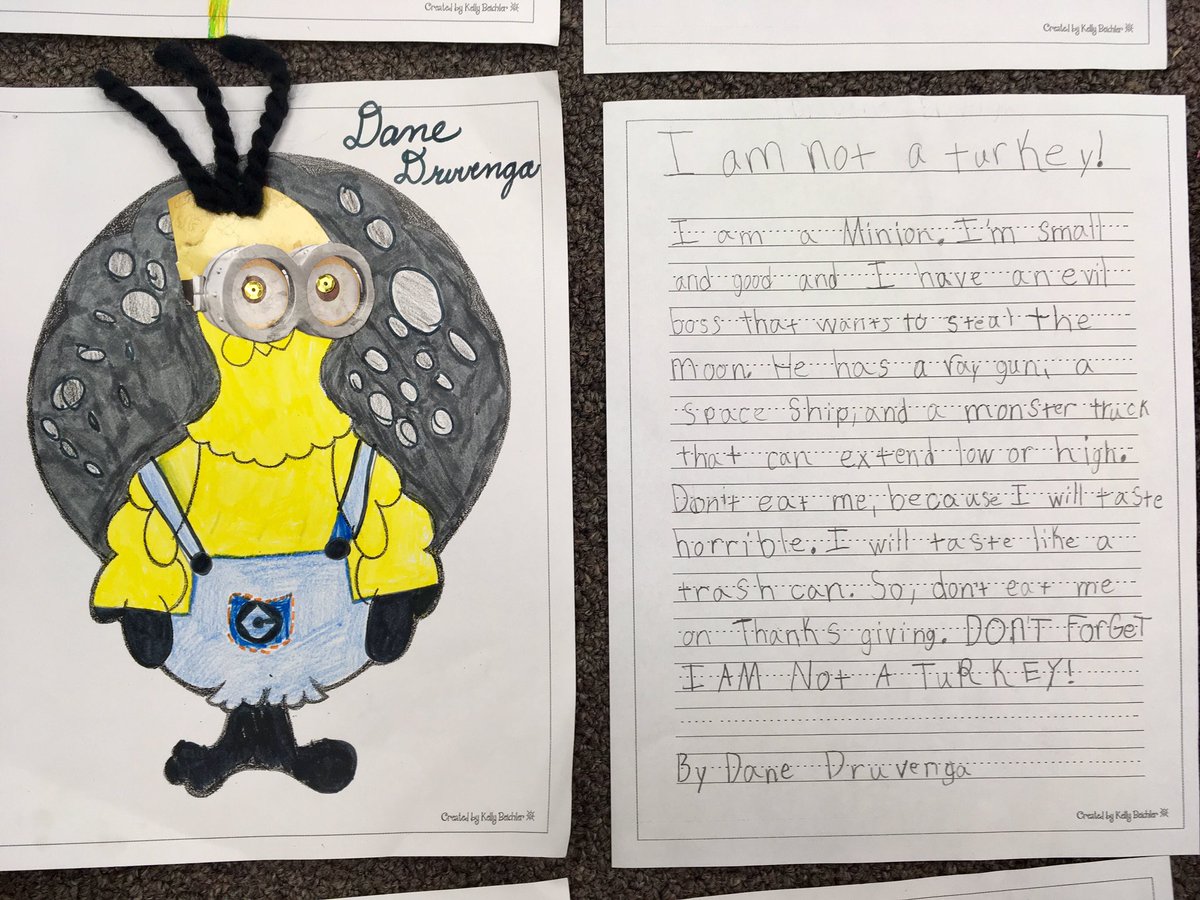 Created by Kelly Beichler
Created by Kelly Beichler
Dane
Druvenga
I am not a turkey!
I am a Minion. I'm small
and good and I have an evil
boss that wants to steal the
moon. He has a ray gun, a
space ship, and a monster truck
that can extend low or high.
Don't eat me, because I will taste
horrible. I will taste like a
trash can. So, don't eat me
on Thanks giving. DON'T ForGeT
I AM Not A TuRKEY!
By Dane Druvenga
Created by Kelly Beichler
Created by Kelly Beichler